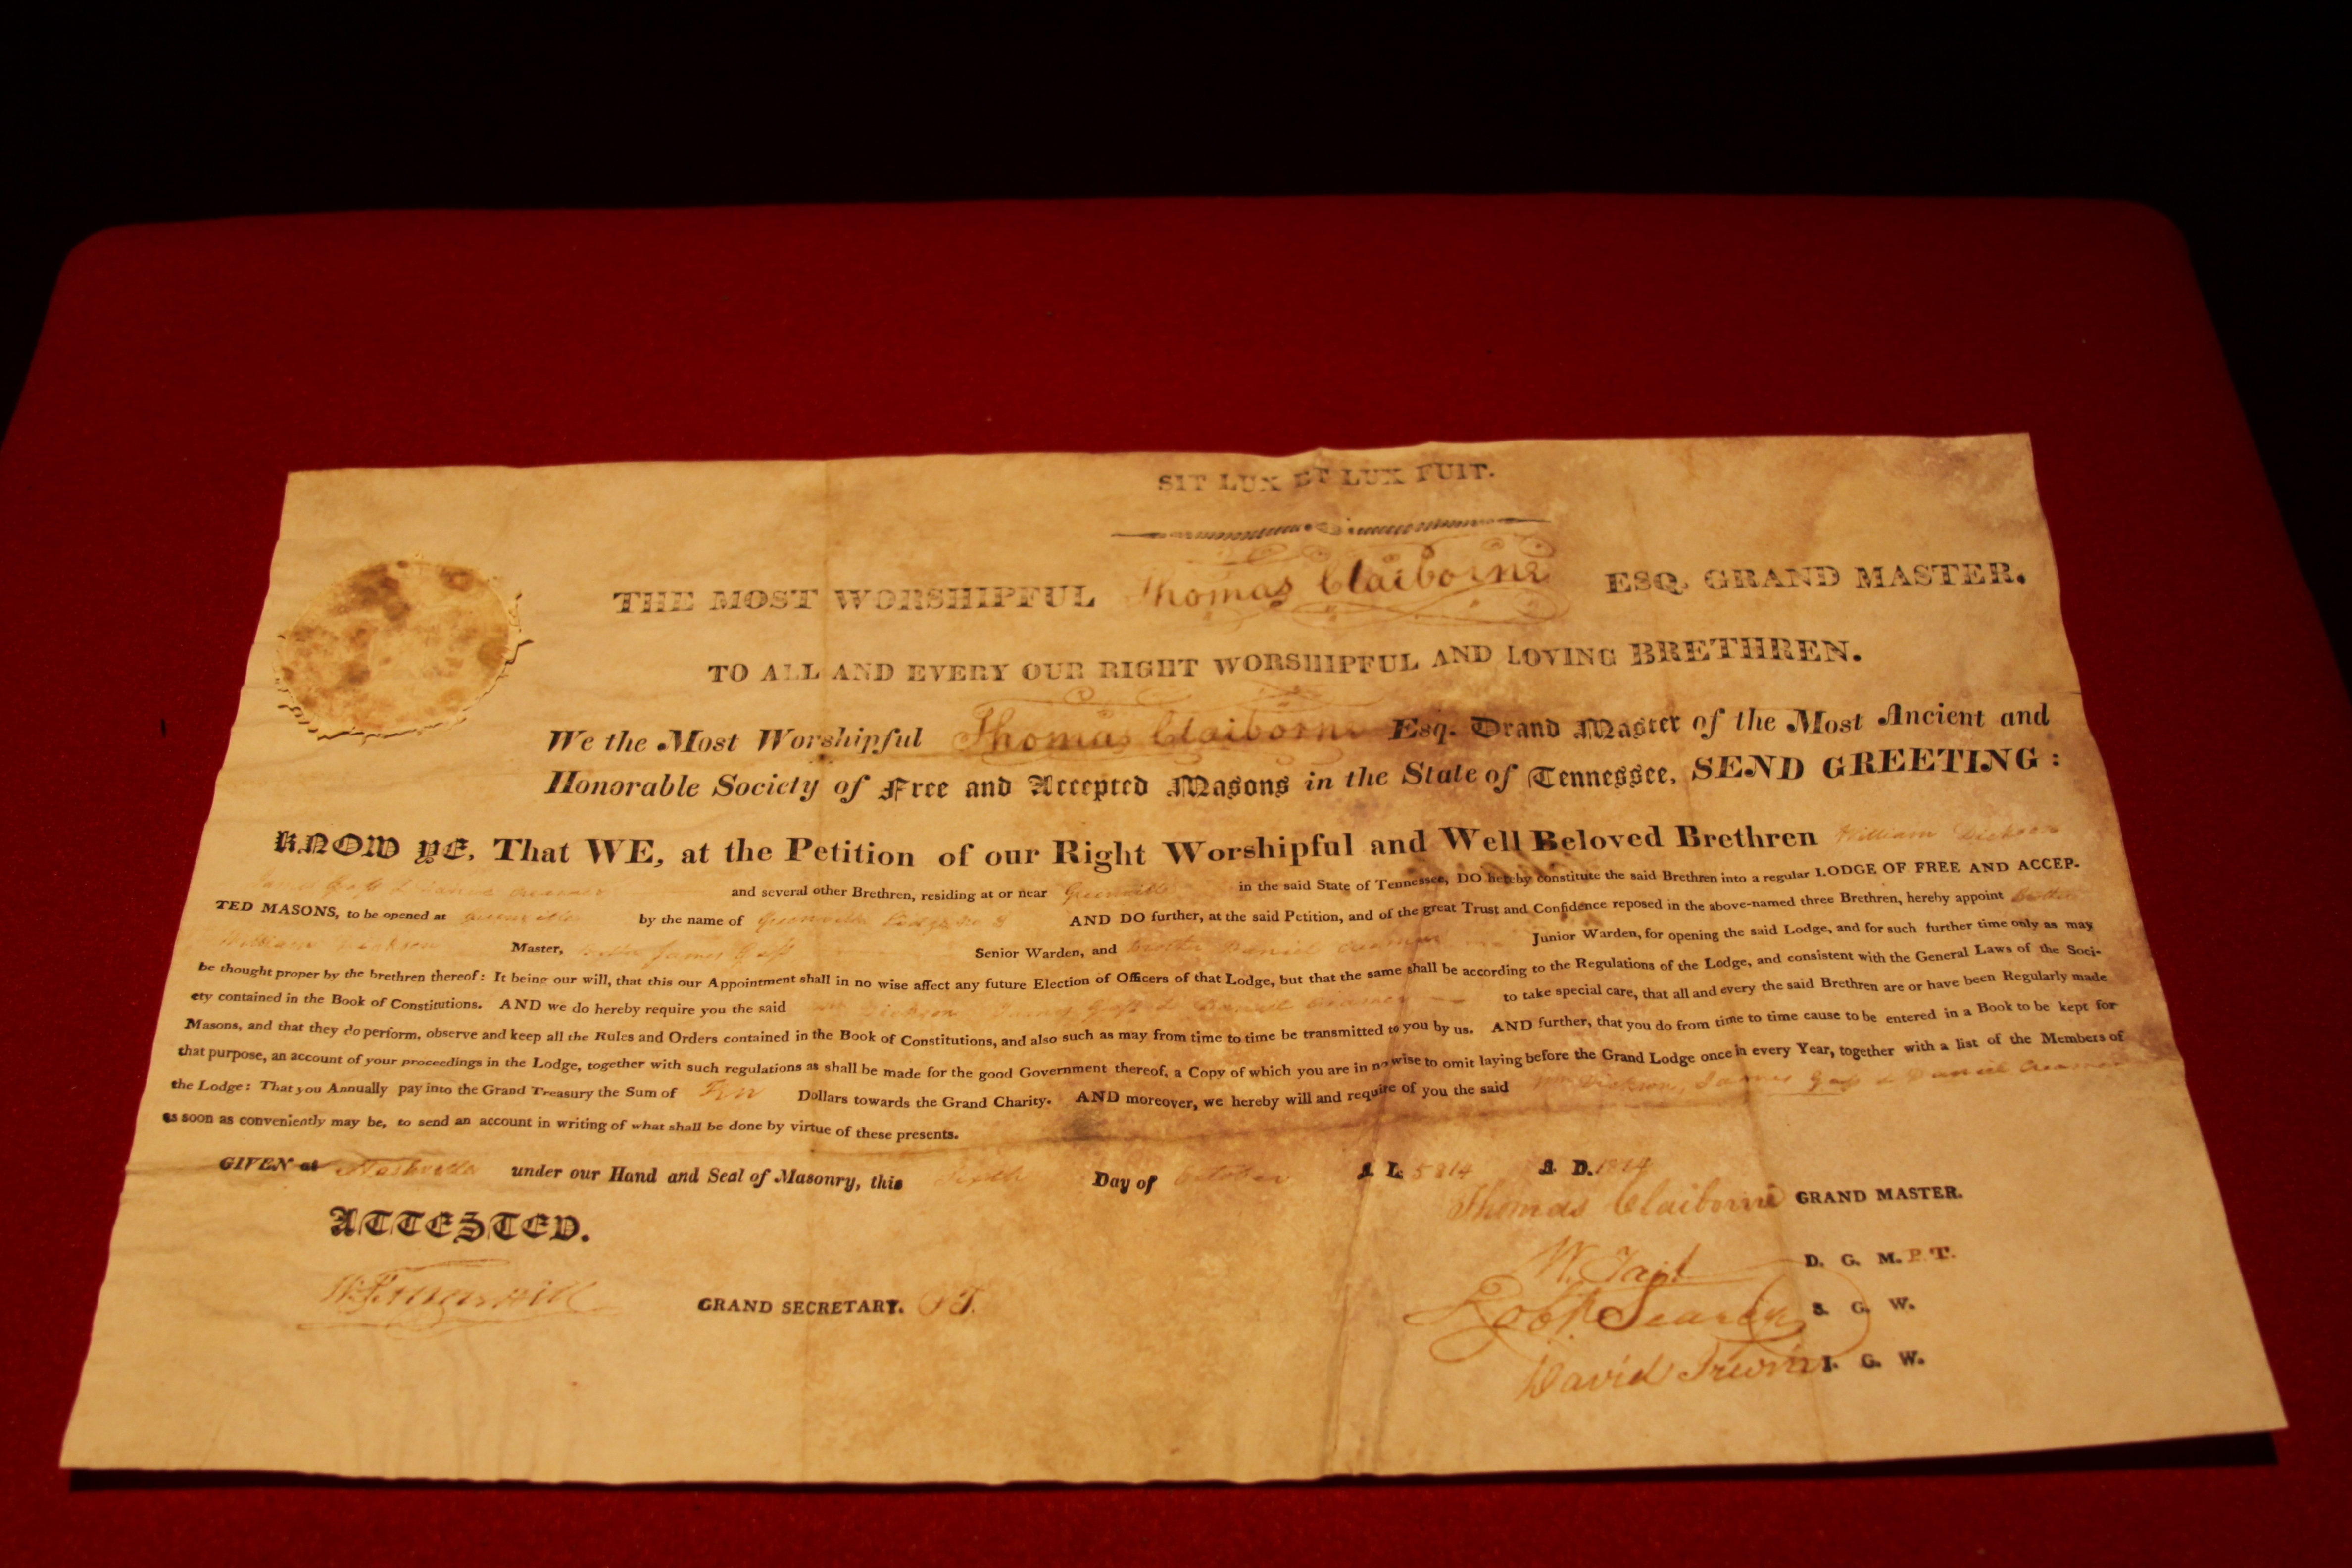 SIT LUX ET LUX FUIT.
THE MOST WORSHIPFUL Thomas Claiborne ESQ. GRAND MASTER.
TO ALL AND EVERY OUR RIGHT WORSHIPFUL AND LOVING BRETHREN.
We the Most Worshipful Thomas Claiborne Esq. Grand Master of the Most Ancient and
Honorable Society of Free and Accepted Masons in the State of Tennessee, SEND GREETING:
KNOW YE, That WE, at the Petition of our Right Worshipful and Well Beloved Brethren William Dickson
James Gass & and several other Brethren, residing at or near Greenville in the said State of Tennessee, DO hereby constitute the said Brethren into a regular LODGE OF FREE AND ACCEP-
TED MASONS, to be opened at Greenville by the name of Greenville Lodge No 3 AND DO further, at the said Petition, and of the great Trust and Confidence reposed in the above-named three Brethren, hereby appoint Brother
William Dickson Master, Brother James Gass Senior Warden, and Brother Daniel Creamer Junior Warden, for opening the said Lodge, and for such further time only as may
be thought proper by the brethren thereof: It being our will, that this our Appointment shall in no wise affect any future Election of Officers of that Lodge, but that the same shall be according to the Regulations of the Lodge, and consistent with the General Laws of the Soci-
ety contained in the Book of Constitutions. AND we do hereby require you the said Dickson James Gass & Daniel Creamer to take special care, that all and every the said Brethren are or have been Regularly made
Masons, and that they do perform, observe and keep all the Rules and Orders contained in the Book of Constitutions, and also such as may from time to time be transmitted to you by us. AND further, that you do from time to time cause to be entered in a Book to be kept for
that purpose, an account of your proceedings in the Lodge, together with such regulations as shall be made for the good Government thereof, a Copy of which you are in no wise to omit laying before the Grand Lodge once in every Year, together with a list of the Members of
the Lodge: That you Annually pay into the Grand Treasury the Sum of Dollars towards the Grand Charity. AND moreover, we hereby will and require of you the said Wm Dickson, James Gass & Daniel Creamer
as soon as conveniently may be, to send an account in writing of what shall be done by virtue of these presents.
GIVEN at Nashville under our Hand and Seal of Masonry, this Day of October A. L. 5814 A. D. 1814
ATTESTED.
Thomas Claiborne GRAND MASTER.
W. Tait D. G. M. P. T.
GRAND SECRETARY. PT.
Robt Searcy S. G. W.
David Irwin J. G. W.